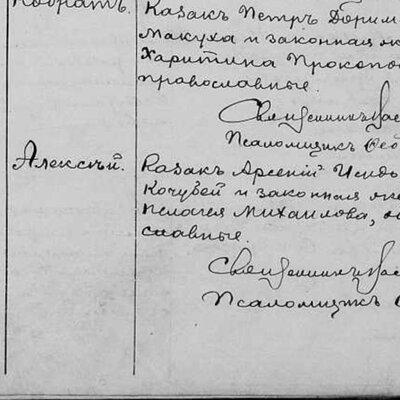 Кодратъ.
Казакъ Петръ
Макуха и законная
Харитина Прокопо
православные.
Священникъ
Псаломщикъ Ѳео
Алексѣй.
Казакъ Арсеній Исидо
Кочубей и законная же
Пелагея Михаилова,
славные.
Священникъ
Псаломщикъ